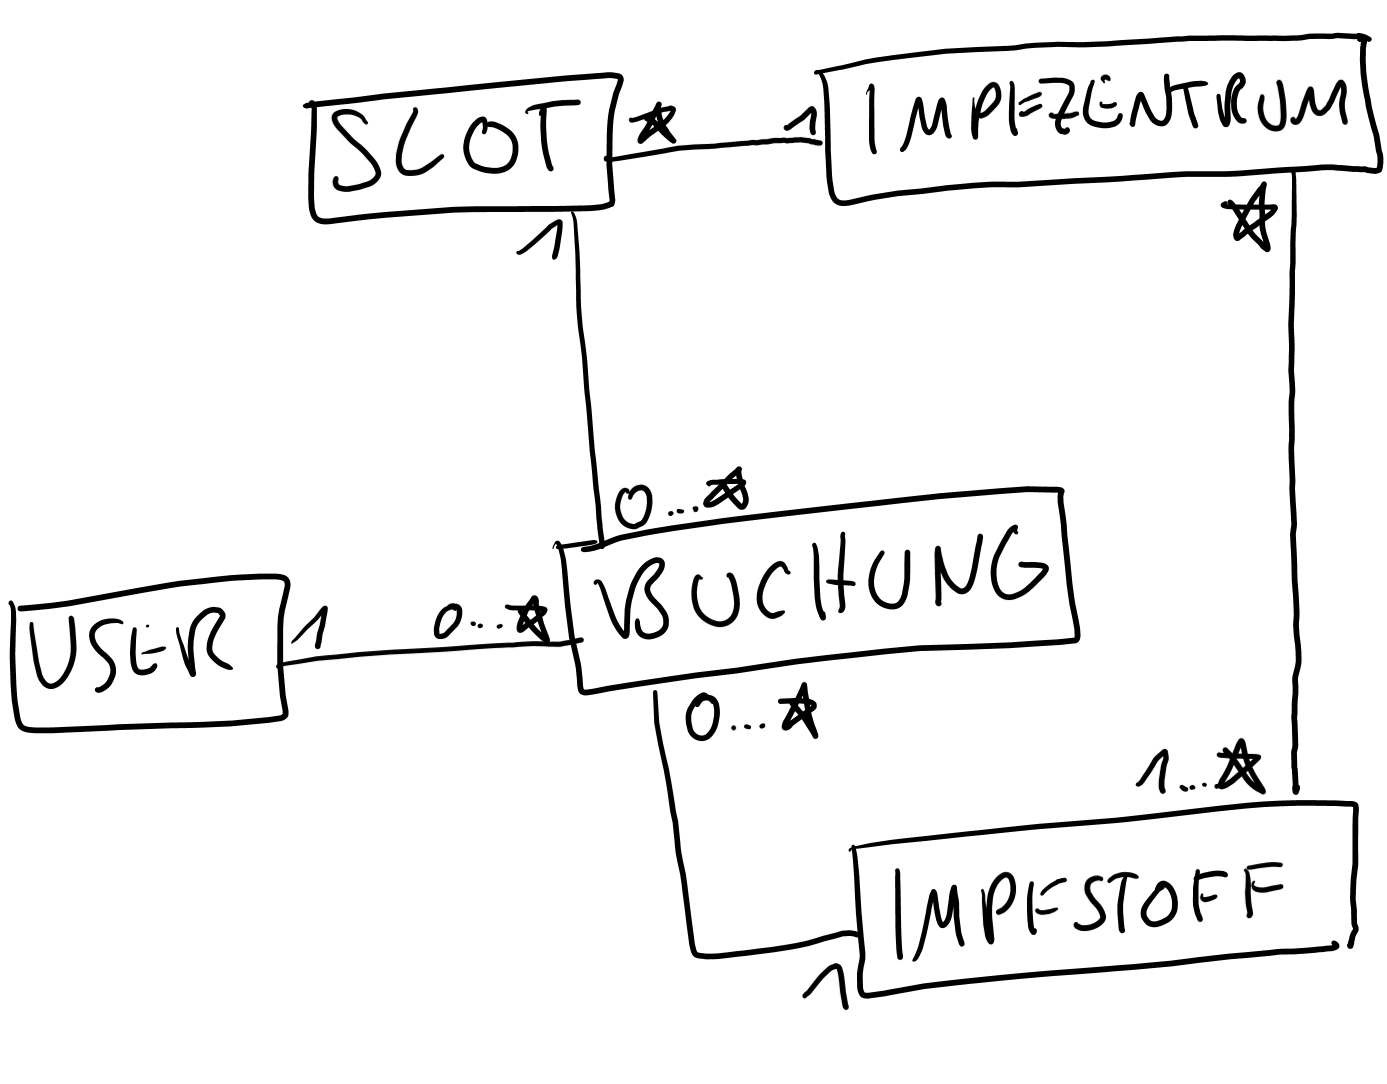 SLOT
*
1
IMPFZENTRUM
1
*
0...*
BUCHUNG
USER
1
0...*
0...*
1...*
IMPFSTOFF
1